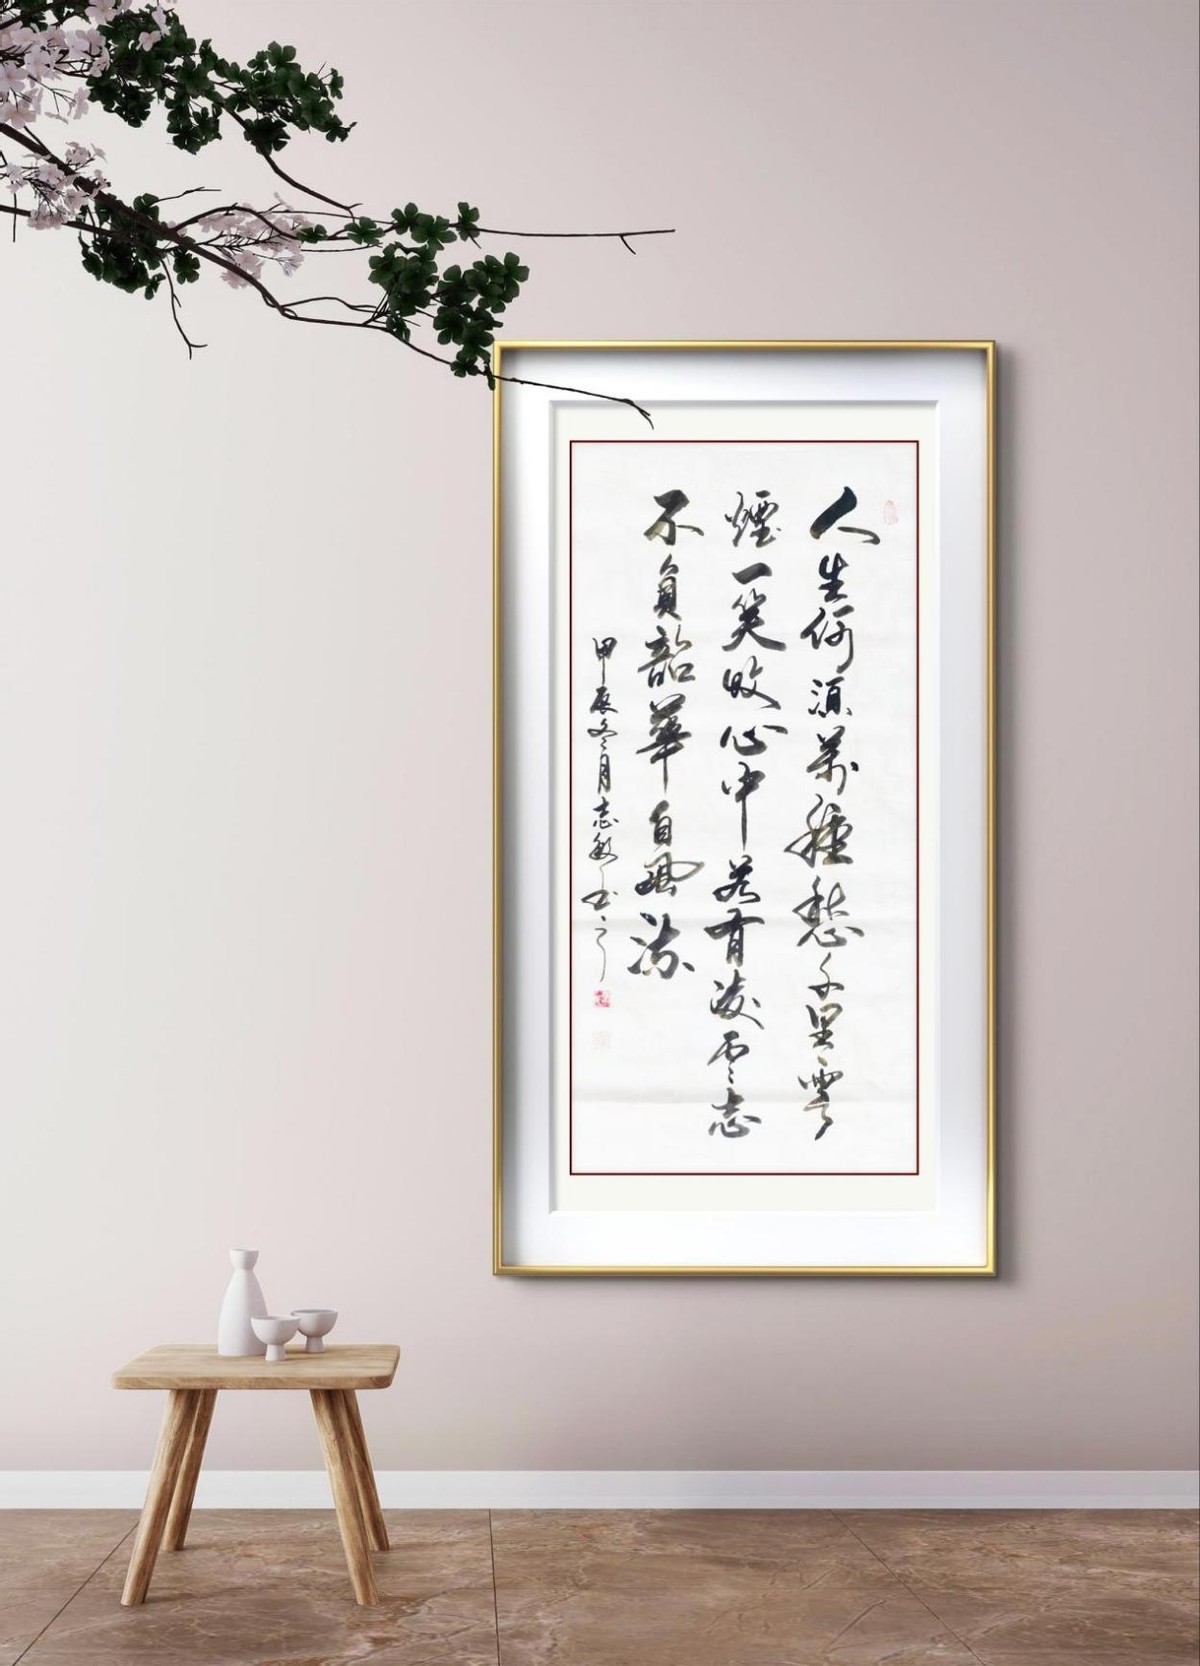 人生何須萬種愁千里雲
煙一笑收心中若有凌雲志
不負韶華自風流
甲辰冬月志敏书之